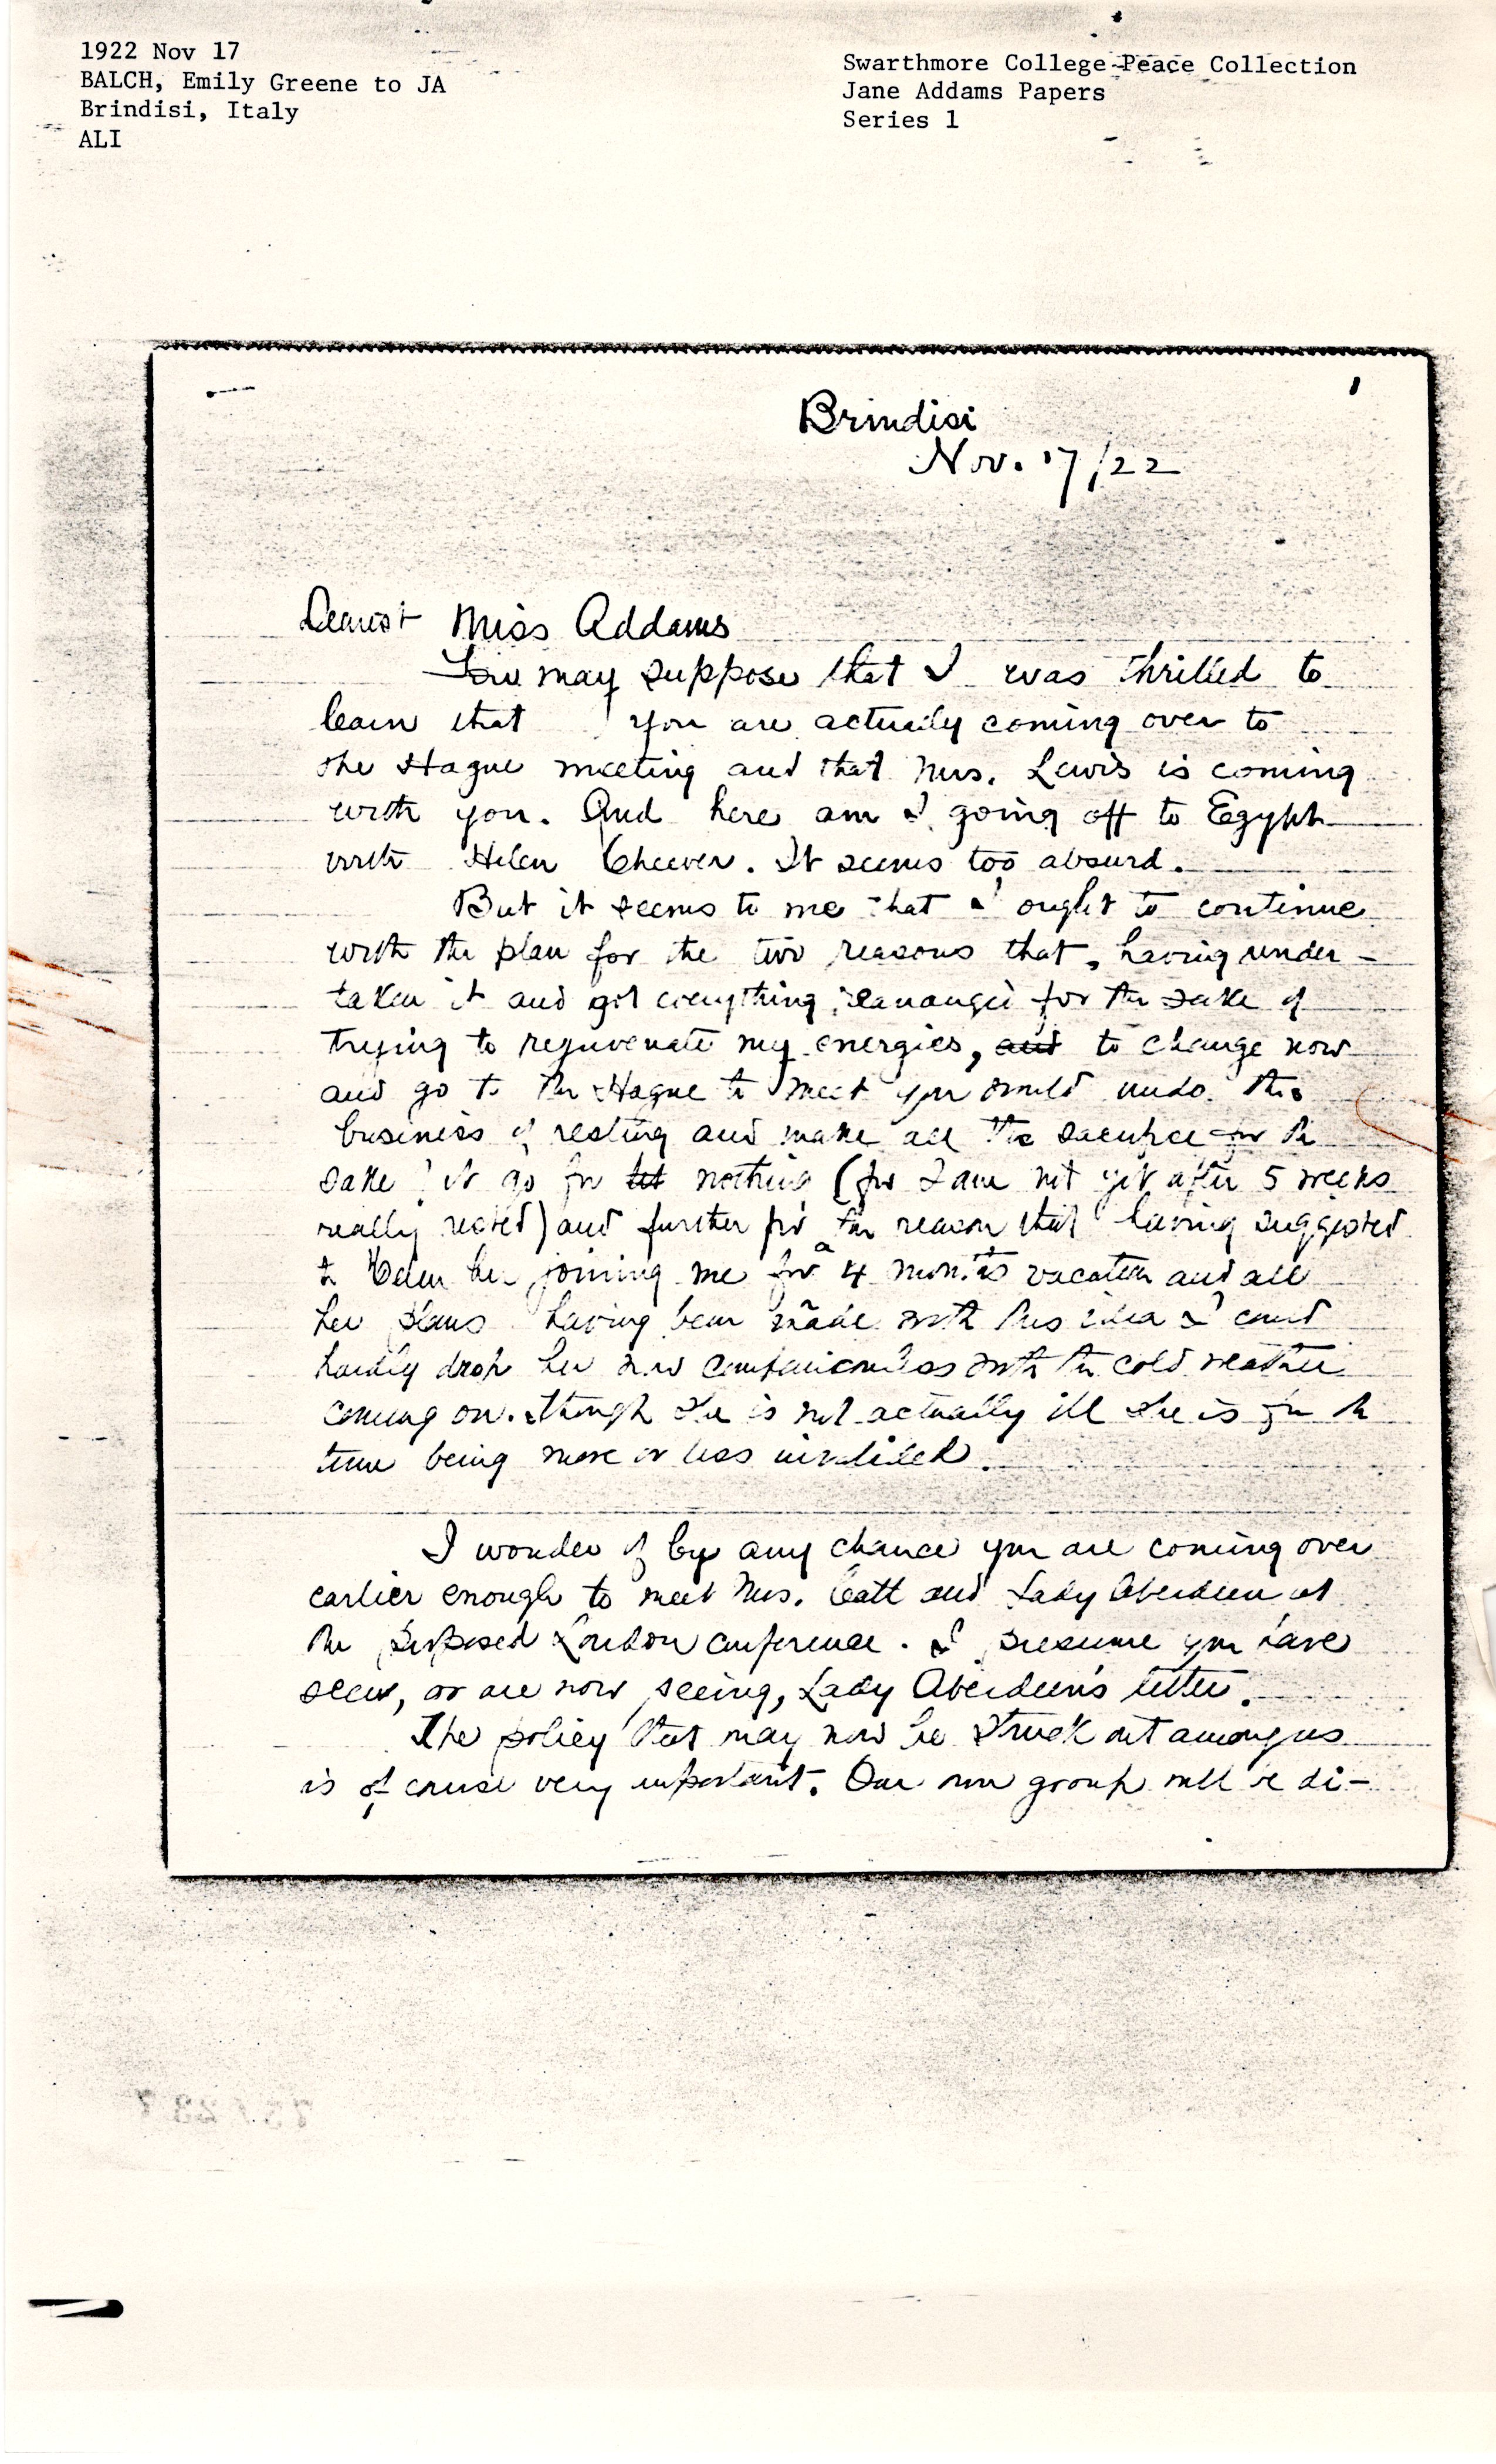 1922 Nov 17
BALCH, Emily Greene to JA
Brindisi, Italy
ALI
Swarthmore College Peace Collection
Jane Addams Papers
Series 1
1
Brindisi
Nov. 17/22
Dearest Miss Addams
You may suppose that I was thrilled to
learn that you are actually coming over to
the Hague meeting and that Mrs. Lewis is coming
with you. And here am I going off to Egypt
with Helen Cheever. It seems too absurd.
But it seems to me that I ought to continue
with the plan for the two reasons that, having under-
taken it and got everything arranged for the sake of
trying to rejuvenate my energies, and to change now
and go to the Hague to meet you would undo this
business of resting and make all the sacrifice for the
sake of it go for nothing (for I am not yet after 5 weeks
really rested) and further for the reason that having suggested
to Helen her joining me for a 4 months vacation and all
her plans having been made with this idea I could
hardly drop her now companionless with the cold weather
coming on. though she is not actually ill she is for the
time being more or less invalided.
I wonder if by any chance you are coming over
earlier enough to meet Mrs. Catt and Lady Aberdeen at
the proposed London conference. I presume you have
seen, or are now seeing, Lady Aberdeen's letter.
The policy that may now be struck out among us
is of course very important. Our own group will be di-